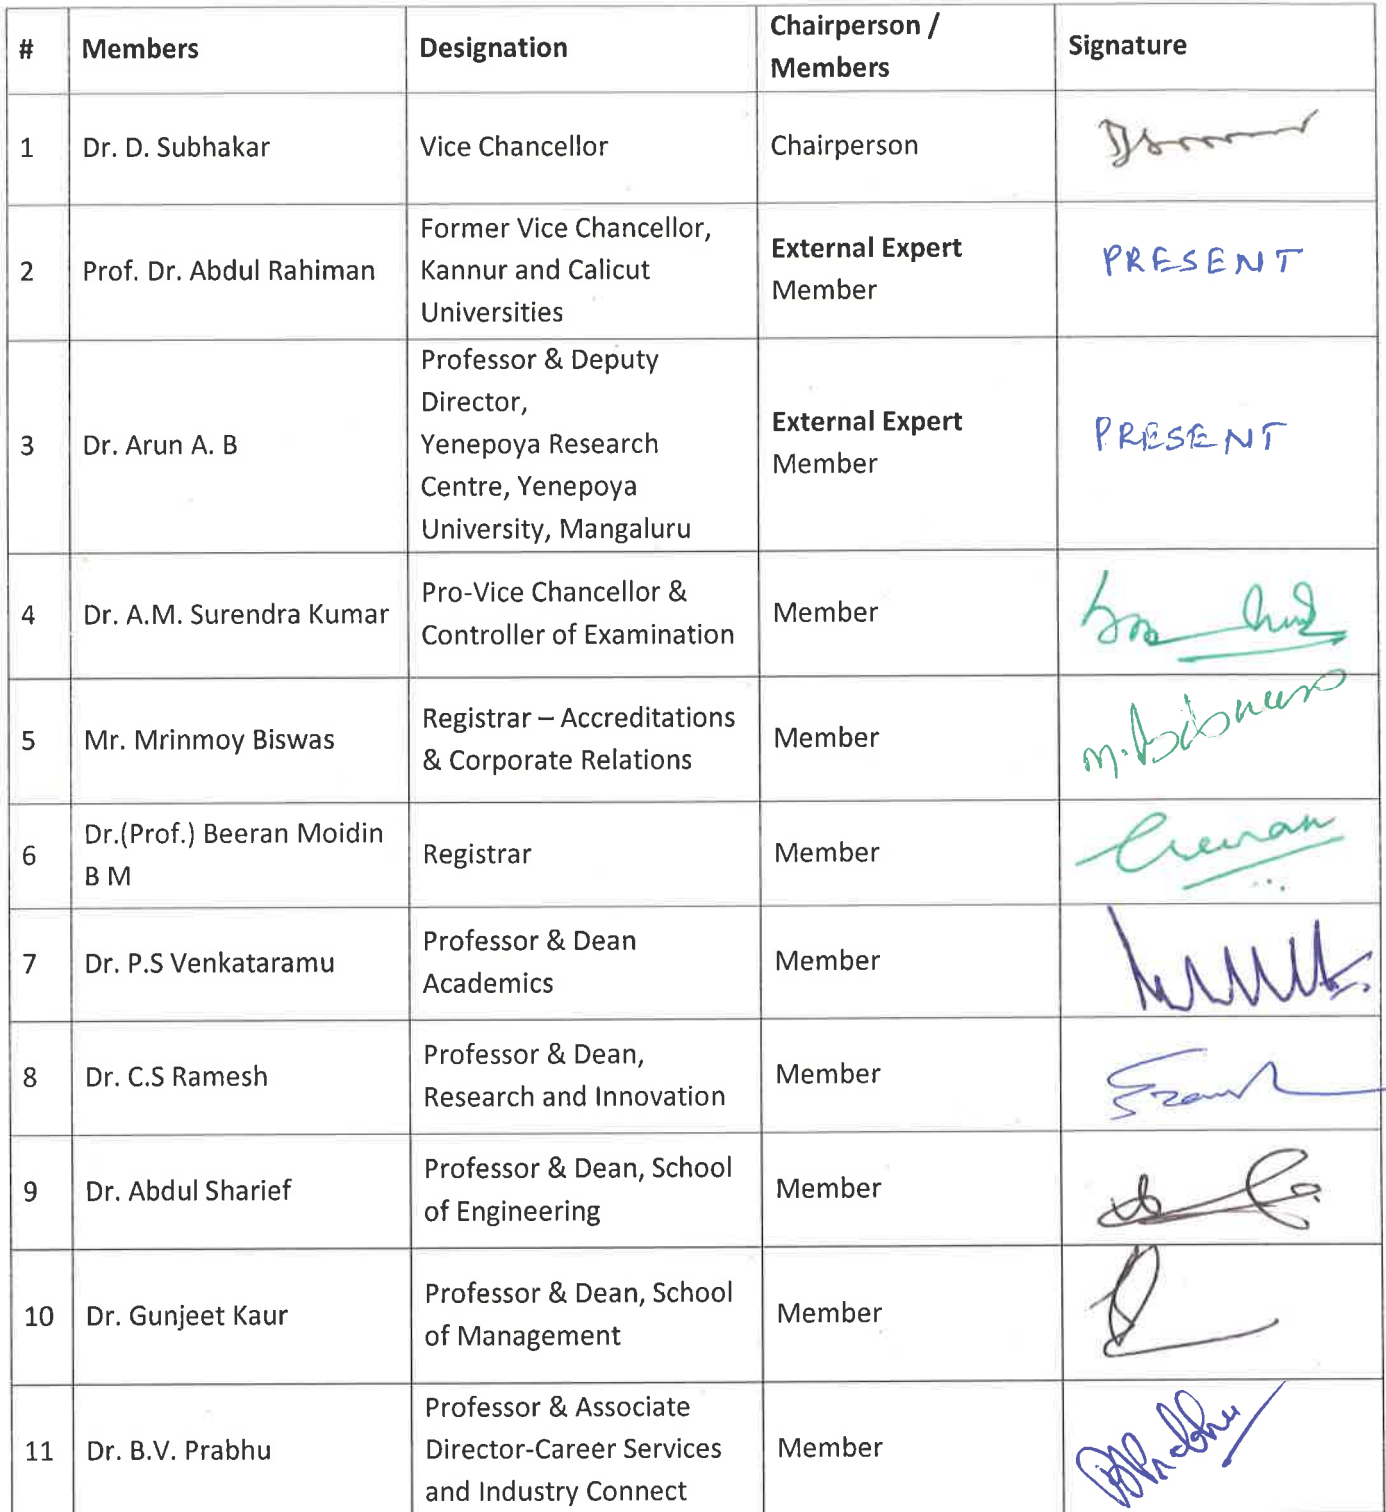 # Members Designation Chairperson / Members Signature
1 Dr. D. Subhakar Vice Chancellor Chairperson
2 Prof. Dr. Abdul Rahiman Former Vice Chancellor,
Kannur and Calicut
Universities
External Expert
Member
PRESENT
3 Dr. Arun A. B Professor & Deputy
Director,
Yenepoya Research
Centre, Yenepoya
University, Mangaluru
External Expert
Member
PRESENT
4 Dr. A.M. Surendra Kumar Pro-Vice Chancellor &
Controller of Examination
Member
5 Mr. Mrinmoy Biswas Registrar – Accreditations
& Corporate Relations
Member
M. Biswas
6 Dr.(Prof.) Beeran Moidin
B M
Registrar Member
7 Dr. P.S Venkataramu Professor & Dean
Academics
Member
8 Dr. C.S Ramesh Professor & Dean,
Research and Innovation
Member
9 Dr. Abdul Sharief Professor & Dean, School
of Engineering
Member
10 Dr. Gunjeet Kaur Professor & Dean, School
of Management
Member
11 Dr. B.V. Prabhu Professor & Associate
Director-Career Services
and Industry Connect
Member